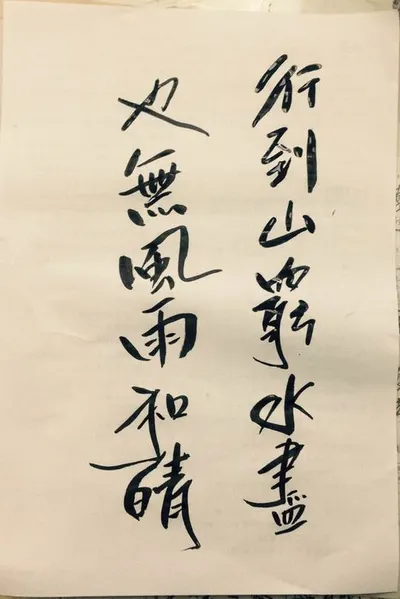 行到山窮水盡
也無風雨和晴